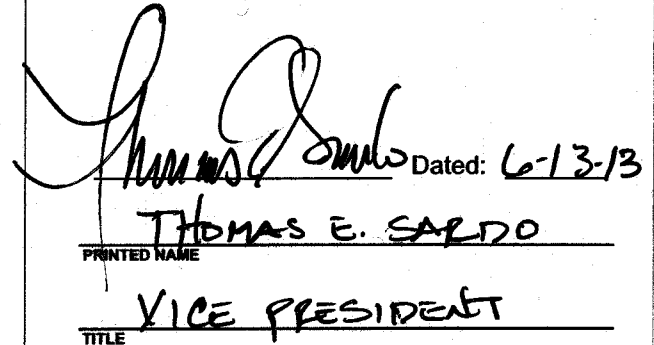 Thomas E Sardo Dated: 6-13-13
THOMAS E. SARDO
PRINTED NAME
VICE PRESIDENT
TITLE